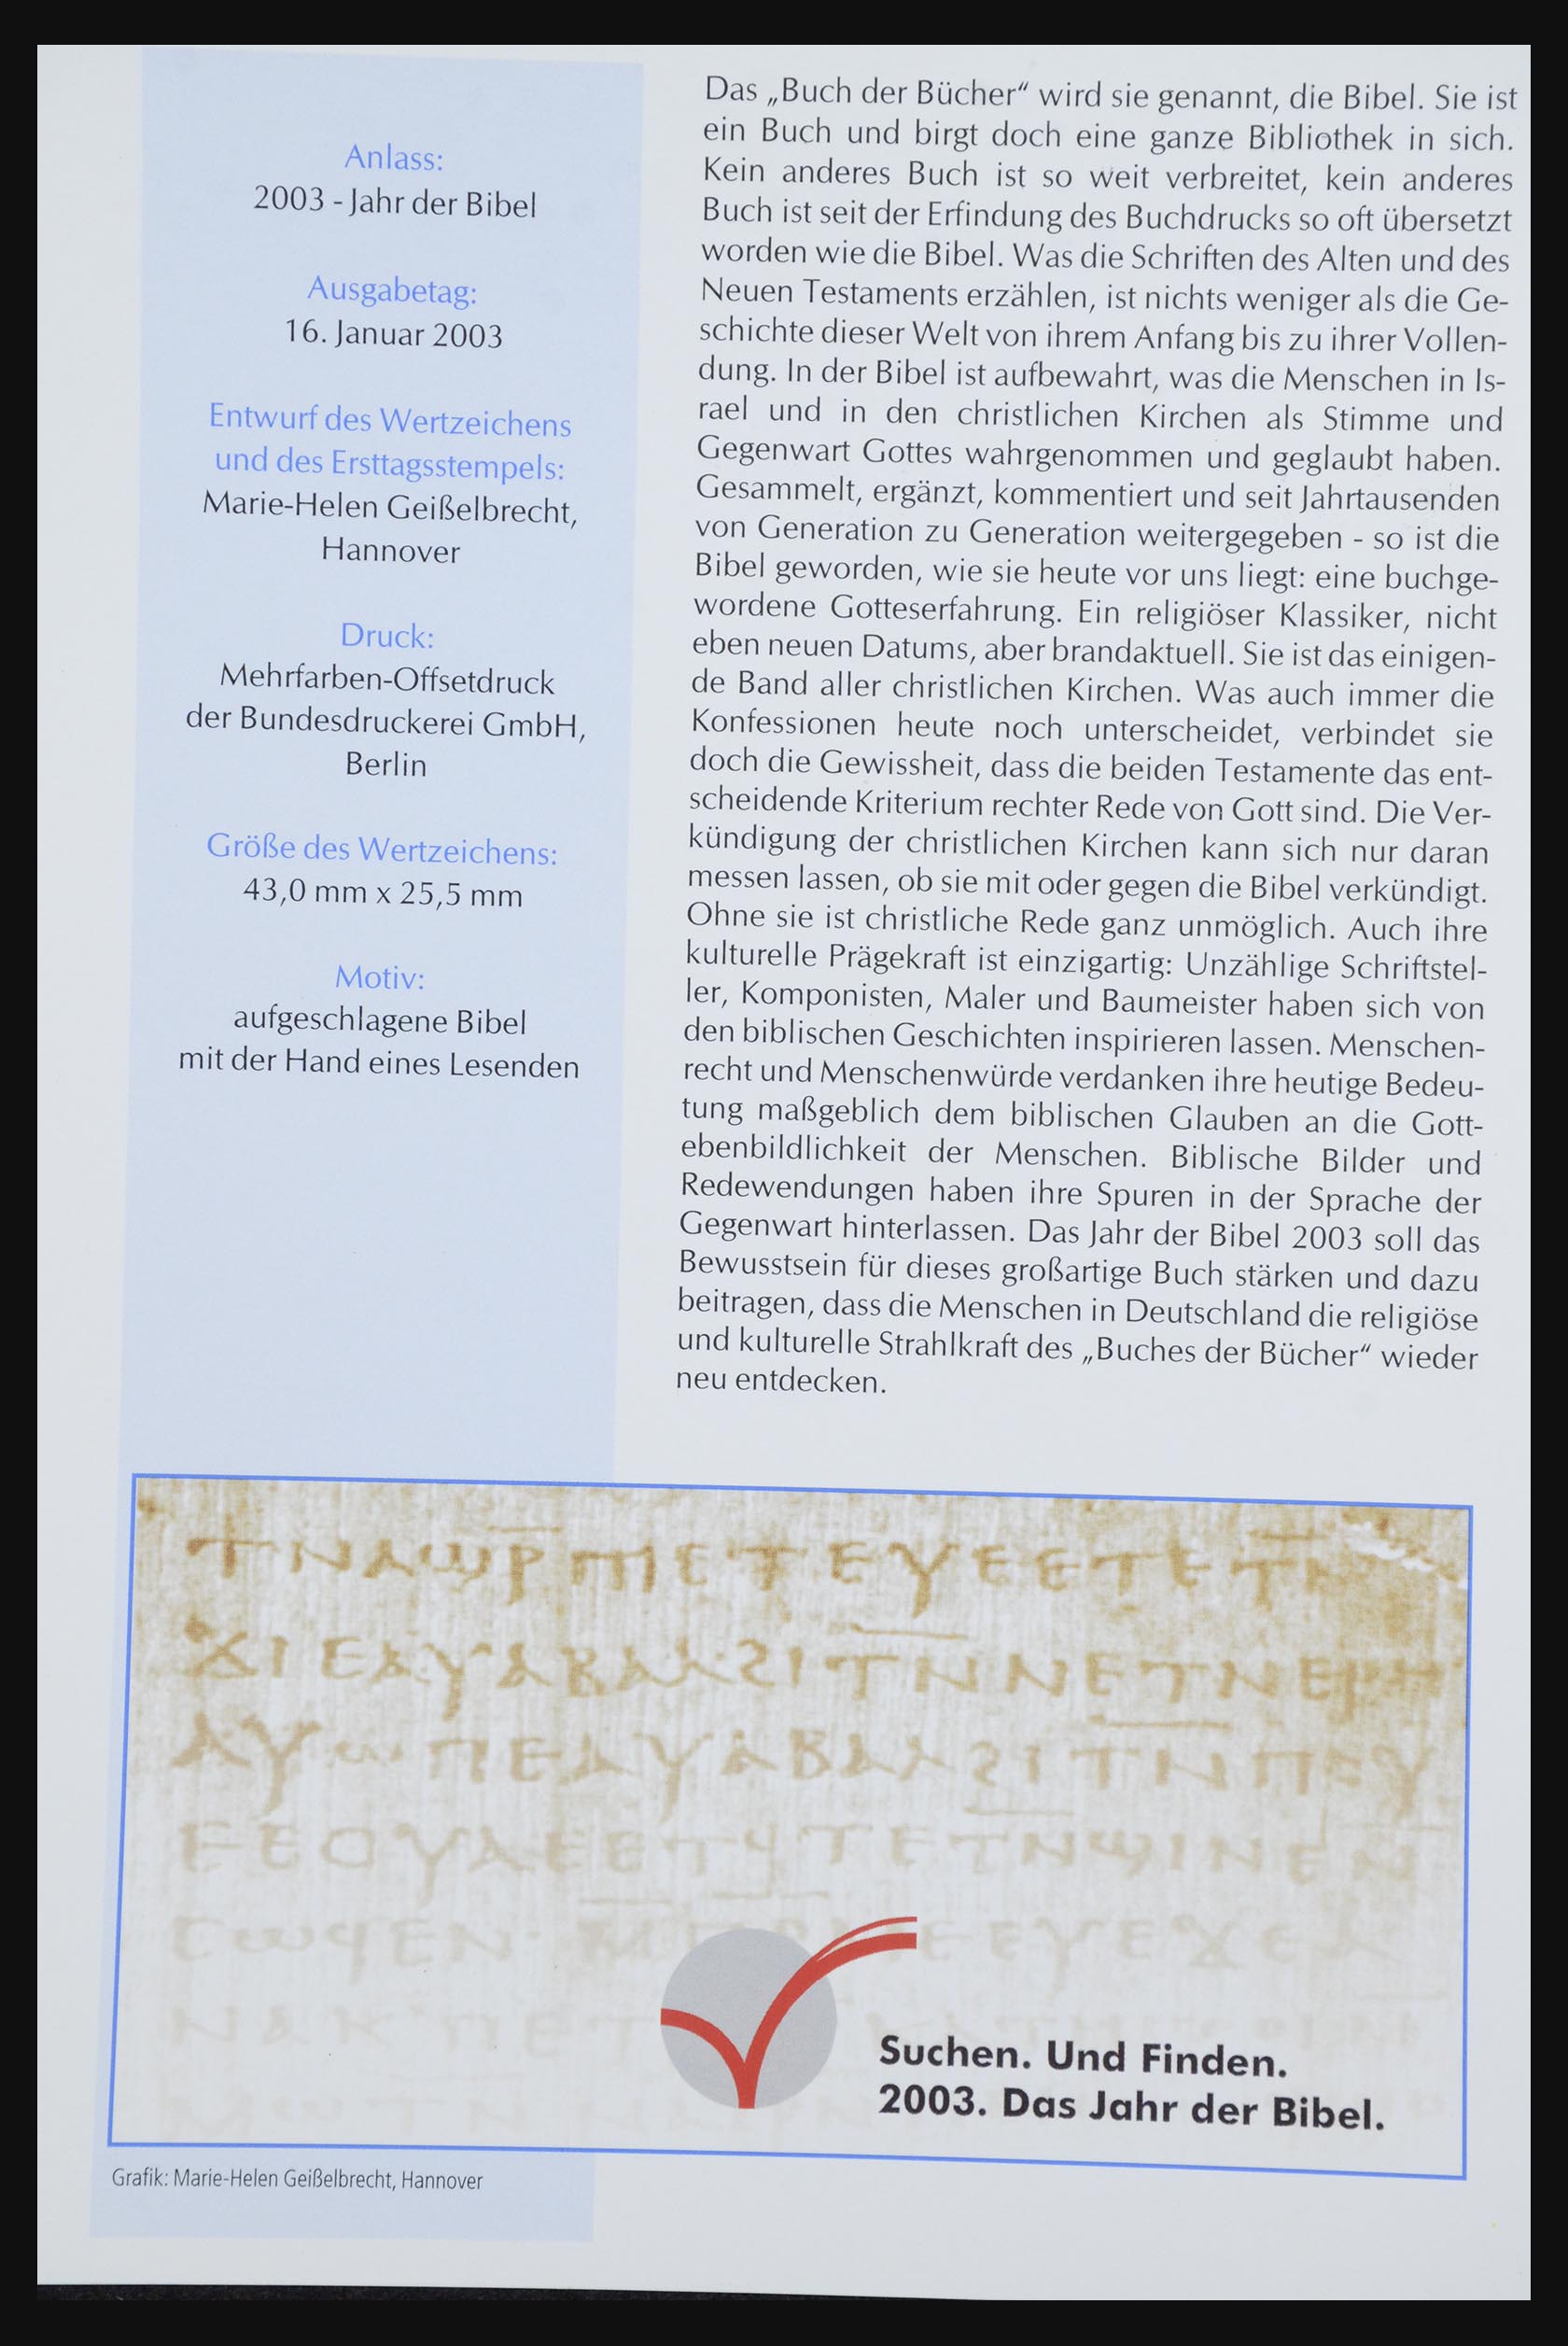 Anlass:
2003 - Jahr der Bibel
Ausgabetag:
16. Januar 2003
Entwurf des Wertzeichens
und des Ersttagsstempels:
Marie-Helen Geißelbrecht,
Hannover
Druck:
Mehrfarben-Offsetdruck
der Bundesdruckerei GmbH,
Berlin
Größe des Wertzeichens:
43,0 mm x 25,5 mm
Motiv:
aufgeschlagene Bibel
mit der Hand eines Lesenden
Das „Buch der Bücher“ wird sie genannt, die Bibel. Sie ist
ein Buch und birgt doch eine ganze Bibliothek in sich.
Kein anderes Buch ist so weit verbreitet, kein anderes
Buch ist seit der Erfindung des Buchdrucks so oft übersetzt
worden wie die Bibel. Was die Schriften des Alten und des
Neuen Testaments erzählen, ist nichts weniger als die Ge-
schichte dieser Welt von ihrem Anfang bis zu ihrer Vollen-
dung. In der Bibel ist aufbewahrt, was die Menschen in Is-
rael und in den christlichen Kirchen als Stimme und
Gegenwart Gottes wahrgenommen und geglaubt haben.
Gesammelt, ergänzt, kommentiert und seit Jahrtausenden
von Generation zu Generation weitergegeben - so ist die
Bibel geworden, wie sie heute vor uns liegt: eine buchge-
wordene Gotteserfahrung. Ein religiöser Klassiker, nicht
eben neuen Datums, aber brandaktuell. Sie ist das einigen-
de Band aller christlichen Kirchen. Was auch immer die
Konfessionen heute noch unterscheidet, verbindet sie
doch die Gewissheit, dass die beiden Testamente das ent-
scheidende Kriterium rechter Rede von Gott sind. Die Ver-
kündigung der christlichen Kirchen kann sich nur daran
messen lassen, ob sie mit oder gegen die Bibel verkündigt.
Ohne sie ist christliche Rede ganz unmöglich. Auch ihre
kulturelle Prägekraft ist einzigartig: Unzählige Schriftstel-
ler, Komponisten, Maler und Baumeister haben sich von
den biblischen Geschichten inspirieren lassen. Menschen-
recht und Menschenwürde verdanken ihre heutige Bedeu-
tung maßgeblich dem biblischen Glauben an die Gott-
ebenbildlichkeit der Menschen. Biblische Bilder und
Redewendungen haben ihre Spuren in der Sprache der
Gegenwart hinterlassen. Das Jahr der Bibel 2003 soll das
Bewusstsein für dieses großartige Buch stärken und dazu
beitragen, dass die Menschen in Deutschland die religiöse
und kulturelle Strahlkraft des „Buches der Bücher“ wieder
neu entdecken.
Suchen. Und Finden.
2003. Das Jahr der Bibel.
Grafik: Marie-Helen Geißelbrecht, Hannover